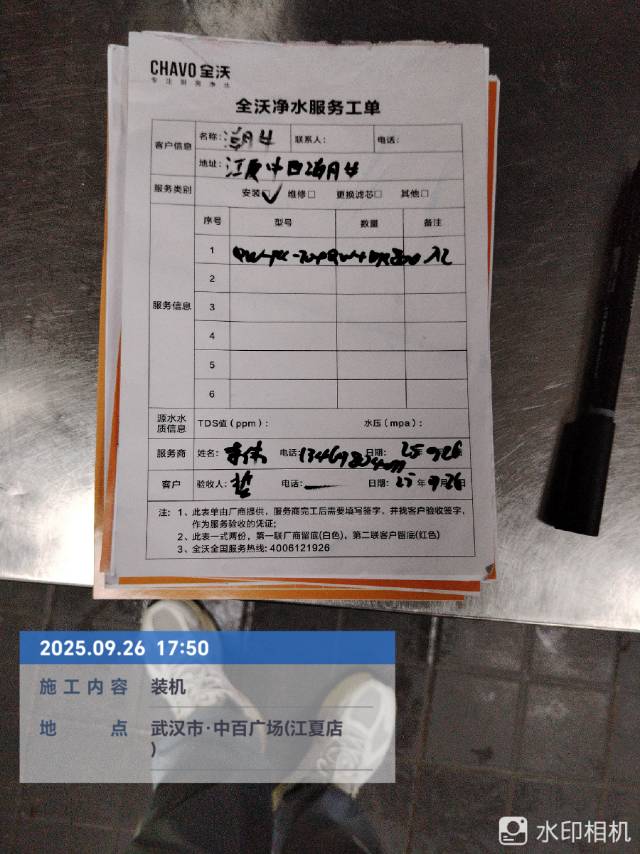 CHAVO 全沃
专注厨房净化
全沃净水服务工单
客户信息 名称: 联系人: 电话:
地址: 江夏中百
服务类别 安装☑ 维修□ 更换滤芯□ 其他□
服务信息 序号 型号 数量 备注
1
2
3
4
5
6
源水水质信息 TDS值(ppm): 水压(mpa):
服务商 姓名: 电话: 日期: 25 9 26
客户 验收人: 电话: 日期: 25年9月26
注: 1、此表单由厂商提供,服务商完工后需要填写签字,并找客户验收签字,
作为服务验收的凭证;
2、此表一式两份,第一联厂商留底(白色),第二联客户留底(红色)
3、全沃全国服务热线: 4006121926
2025.09.26 17:50
施工内容 装机
地点 武汉市·中百广场(江夏店
)
水印相机